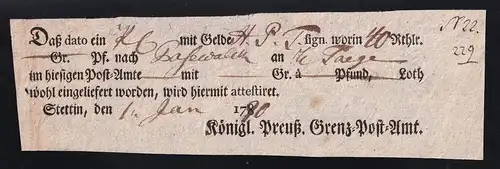 N 22.
229
Daß dato ein K mit Gelde H. P. T. sign. worin 40 Rthlr.
Gr. Pf. nach Pasewalck an
im hiesigen Post-Amte mit Gr. à Pfund, Loth
wohl eingeliefert worden, wird hiermit attestiret.
Stettin, den 1. Jan 1780
Königl. Preuß. Grenz-Post-Amt.